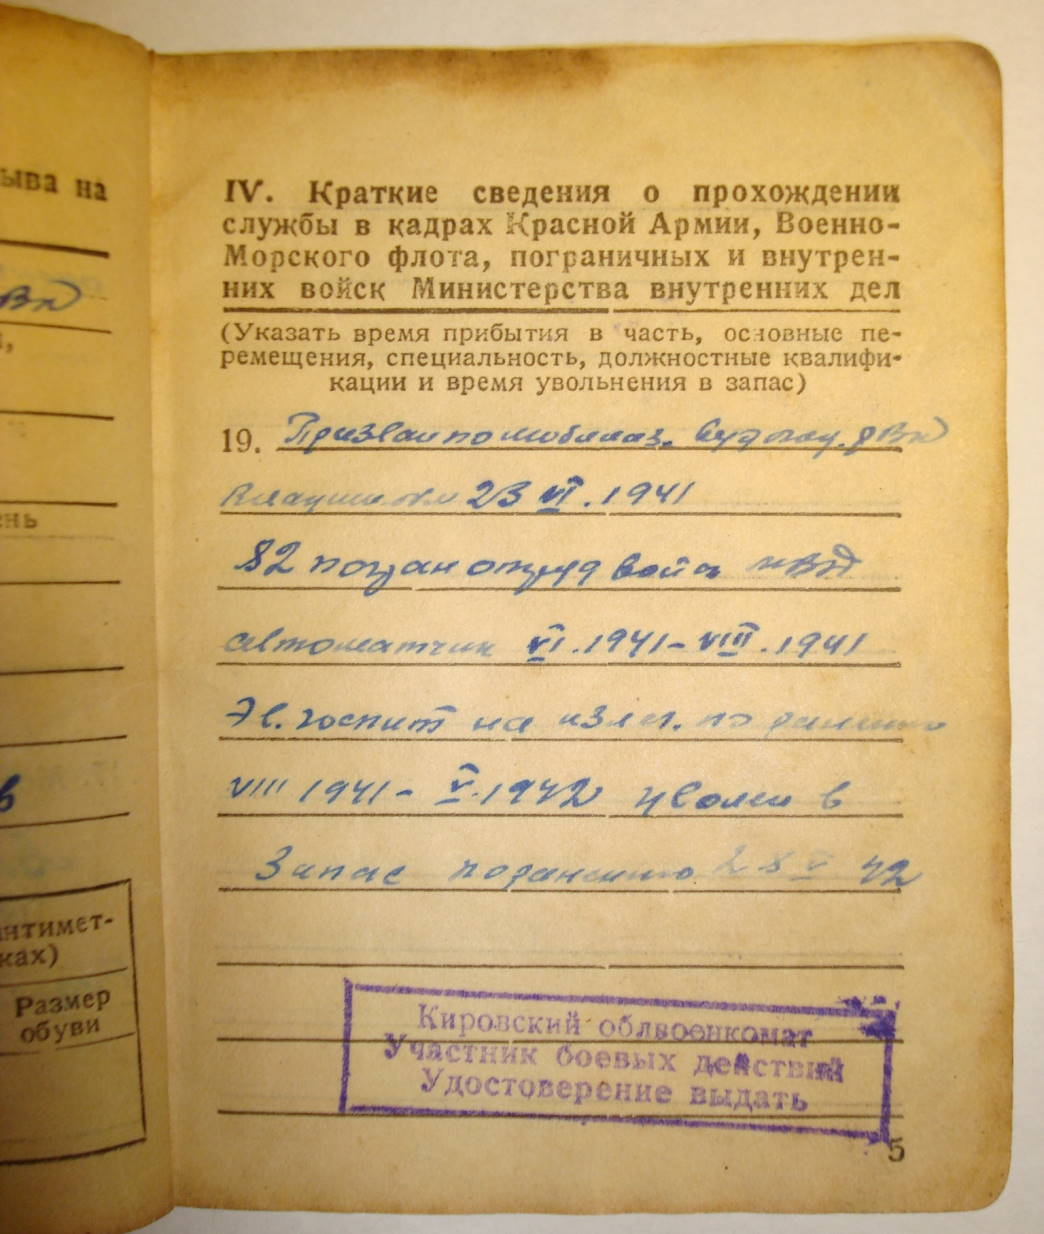 ыва на
IV. Краткие сведения о прохождении
службы в кадрах Красной Армии, Военно-
Морского флота, пограничных и внутрен-
них войск Министерства внутренних дел
(Указать время прибытия в часть, основные пе-
ремещения, специальность, должностные квалифи-
кации и время увольнения в запас)
19. Призван по мобилиз. РВК
23 VI. 1941
82 погран отряд войск НКВД
автоматчик VI. 1941 - VIII. 1941
Эв. госпит на излеч. по ранению
VIII 1941 - V. 1942 уволен в
Запас по ранению 28 V 42
Кировский облвоенкомат
Участник боевых действий
Удостоверение выдать
5
ень
в
антимет-
ках)
Размер
обуви